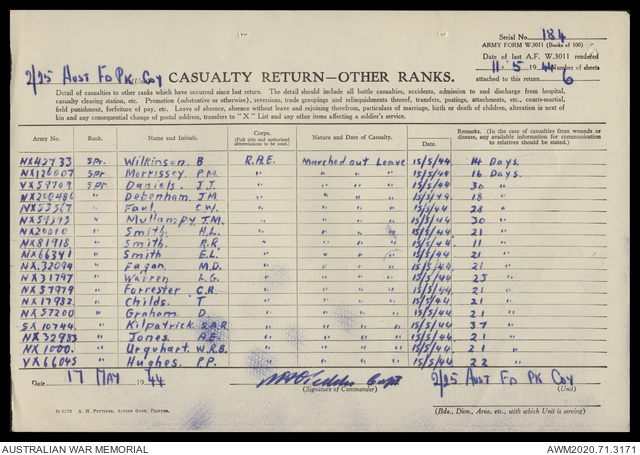 Serial No. 184
ARMY FORM W.3011 (Books of 100)
Date of last A.F. W.3011 rendered
11.5.1944 Number of sheets
attached to this return 6
2/25 Aust Fd Pk Coy CASUALTY RETURN—OTHER RANKS.
Detail of casualties to other ranks which have occurred since last return. The detail should include all battle casualties, accidents, admission to and discharge from hospital,
casualty clearing station, etc. Promotion (substantive or otherwise), reversions, trade groupings and relinquishments thereof, transfers, postings, attachments, etc., courts-martial,
field punishment, forfeiture of pay, etc. Leave of absence, absence without leave and rejoining therefrom, particulars of marriage, birth or death of children, alteration in next of
kin and any consequential change of postal address, transfers to "X" List and any other items affecting a soldier's service.
Army No. Rank. Name and Initials. Corps. (Full title and authorized abbreviations to be used.) Nature and Date of Casualty. Date. Remarks. (In the case of casualties from wounds or disease, any available information for communication to relatives should be stated.)
NX43733 Spr. Wilkinson. B R.A.E. Marched out Leave 15/5/44. 14 Days.
NX126007 Spr Morrissey. P.M. " " " 15/5/44. 16 Days.
VX59709 Spr Daniels. J.J. " " " 15/5/44. 30 "
NX200480 " Debenham. J.M. " " " 15/5/44. 18 "
NX53567 " Faul. C.W. " " " 15/5/44. 22 "
" Mullampy J.M. " " " 15/5/44. 30 "
NX20010 " Smith. H.L. " " " 15/5/44. 21 "
NX81918 " Smith. R.R. " " " 15/5/44. 11 "
NX66341 " Smith E.L. " " " 15/5/44. 21 "
NX32094 " Fagan. M.D. " " " 15/5/44. 21 "
NX31797 " Warren L.G. " " " 15/5/44. 23 "
NX57979 " Forrester C.R. " " " 15/5/44. 21 "
NX17982. " Childs. T " " " 15/5/44. 21 "
NX57200 " Graham. D. " " " 15/5/44. 21 "
SX10744. " Kilpatrick. S.A.R. " " " 15/5/44. 37 "
NX32983 " Jones. A.E. " " " 15/5/44. 21 "
NX1000. " Urquhart. W.R.B. " " " 15/5/44. 21 "
VX66045 " Hughes. P.P. " " " 15/5/44. 22 "
Date 17 MAY 1944 Capt 2/25 Aust Fd Pk Coy
(Signature of Commander) (Unit)
A. H. PETTIFER, ACTING GOVT. PRINTER. (Bde., Divn., Area, etc., with which Unit is serving)
AUSTRALIAN WAR MEMORIAL AWM2020.71.3171